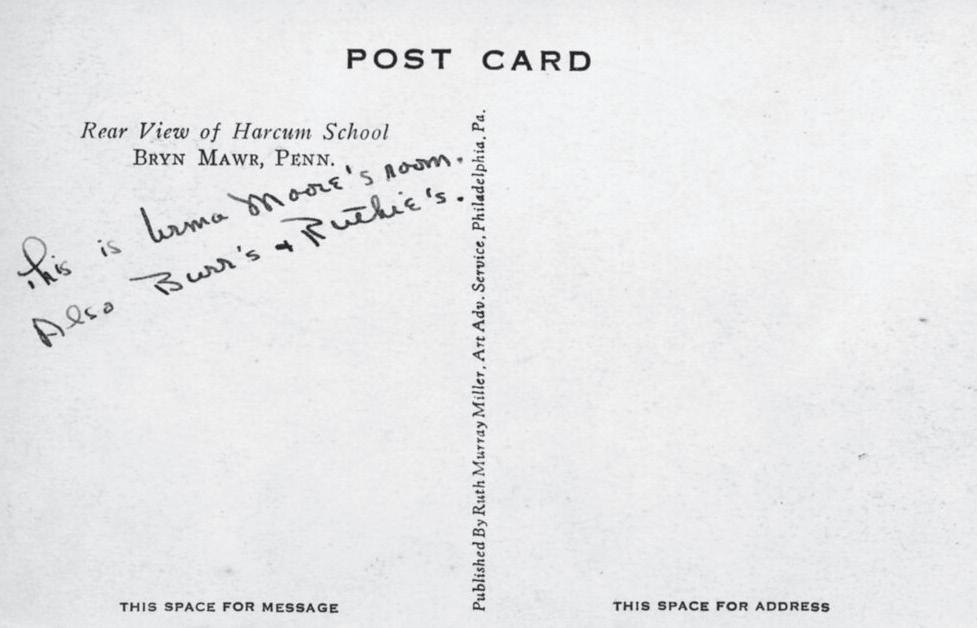 POST CARD
Rear View of Harcum School
BRYN MAWR, PENN.
This is Irma Moore's room.
Also Burr's + Ruthie's.
Published By Ruth Murray Miller, Art Adv. Service, Philadelphia, Pa.
THIS SPACE FOR MESSAGE
THIS SPACE FOR ADDRESS